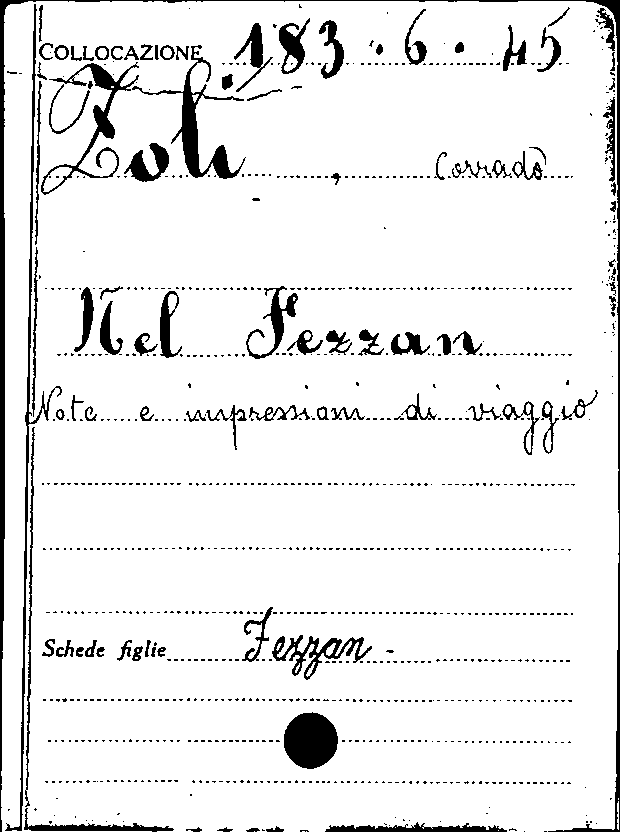 COLLOCAZIONE 183 · 6 · 45
Zoli, Corrado
Nel Fezzan
Note e impressioni di viaggio
Schede figlie Fezzan -